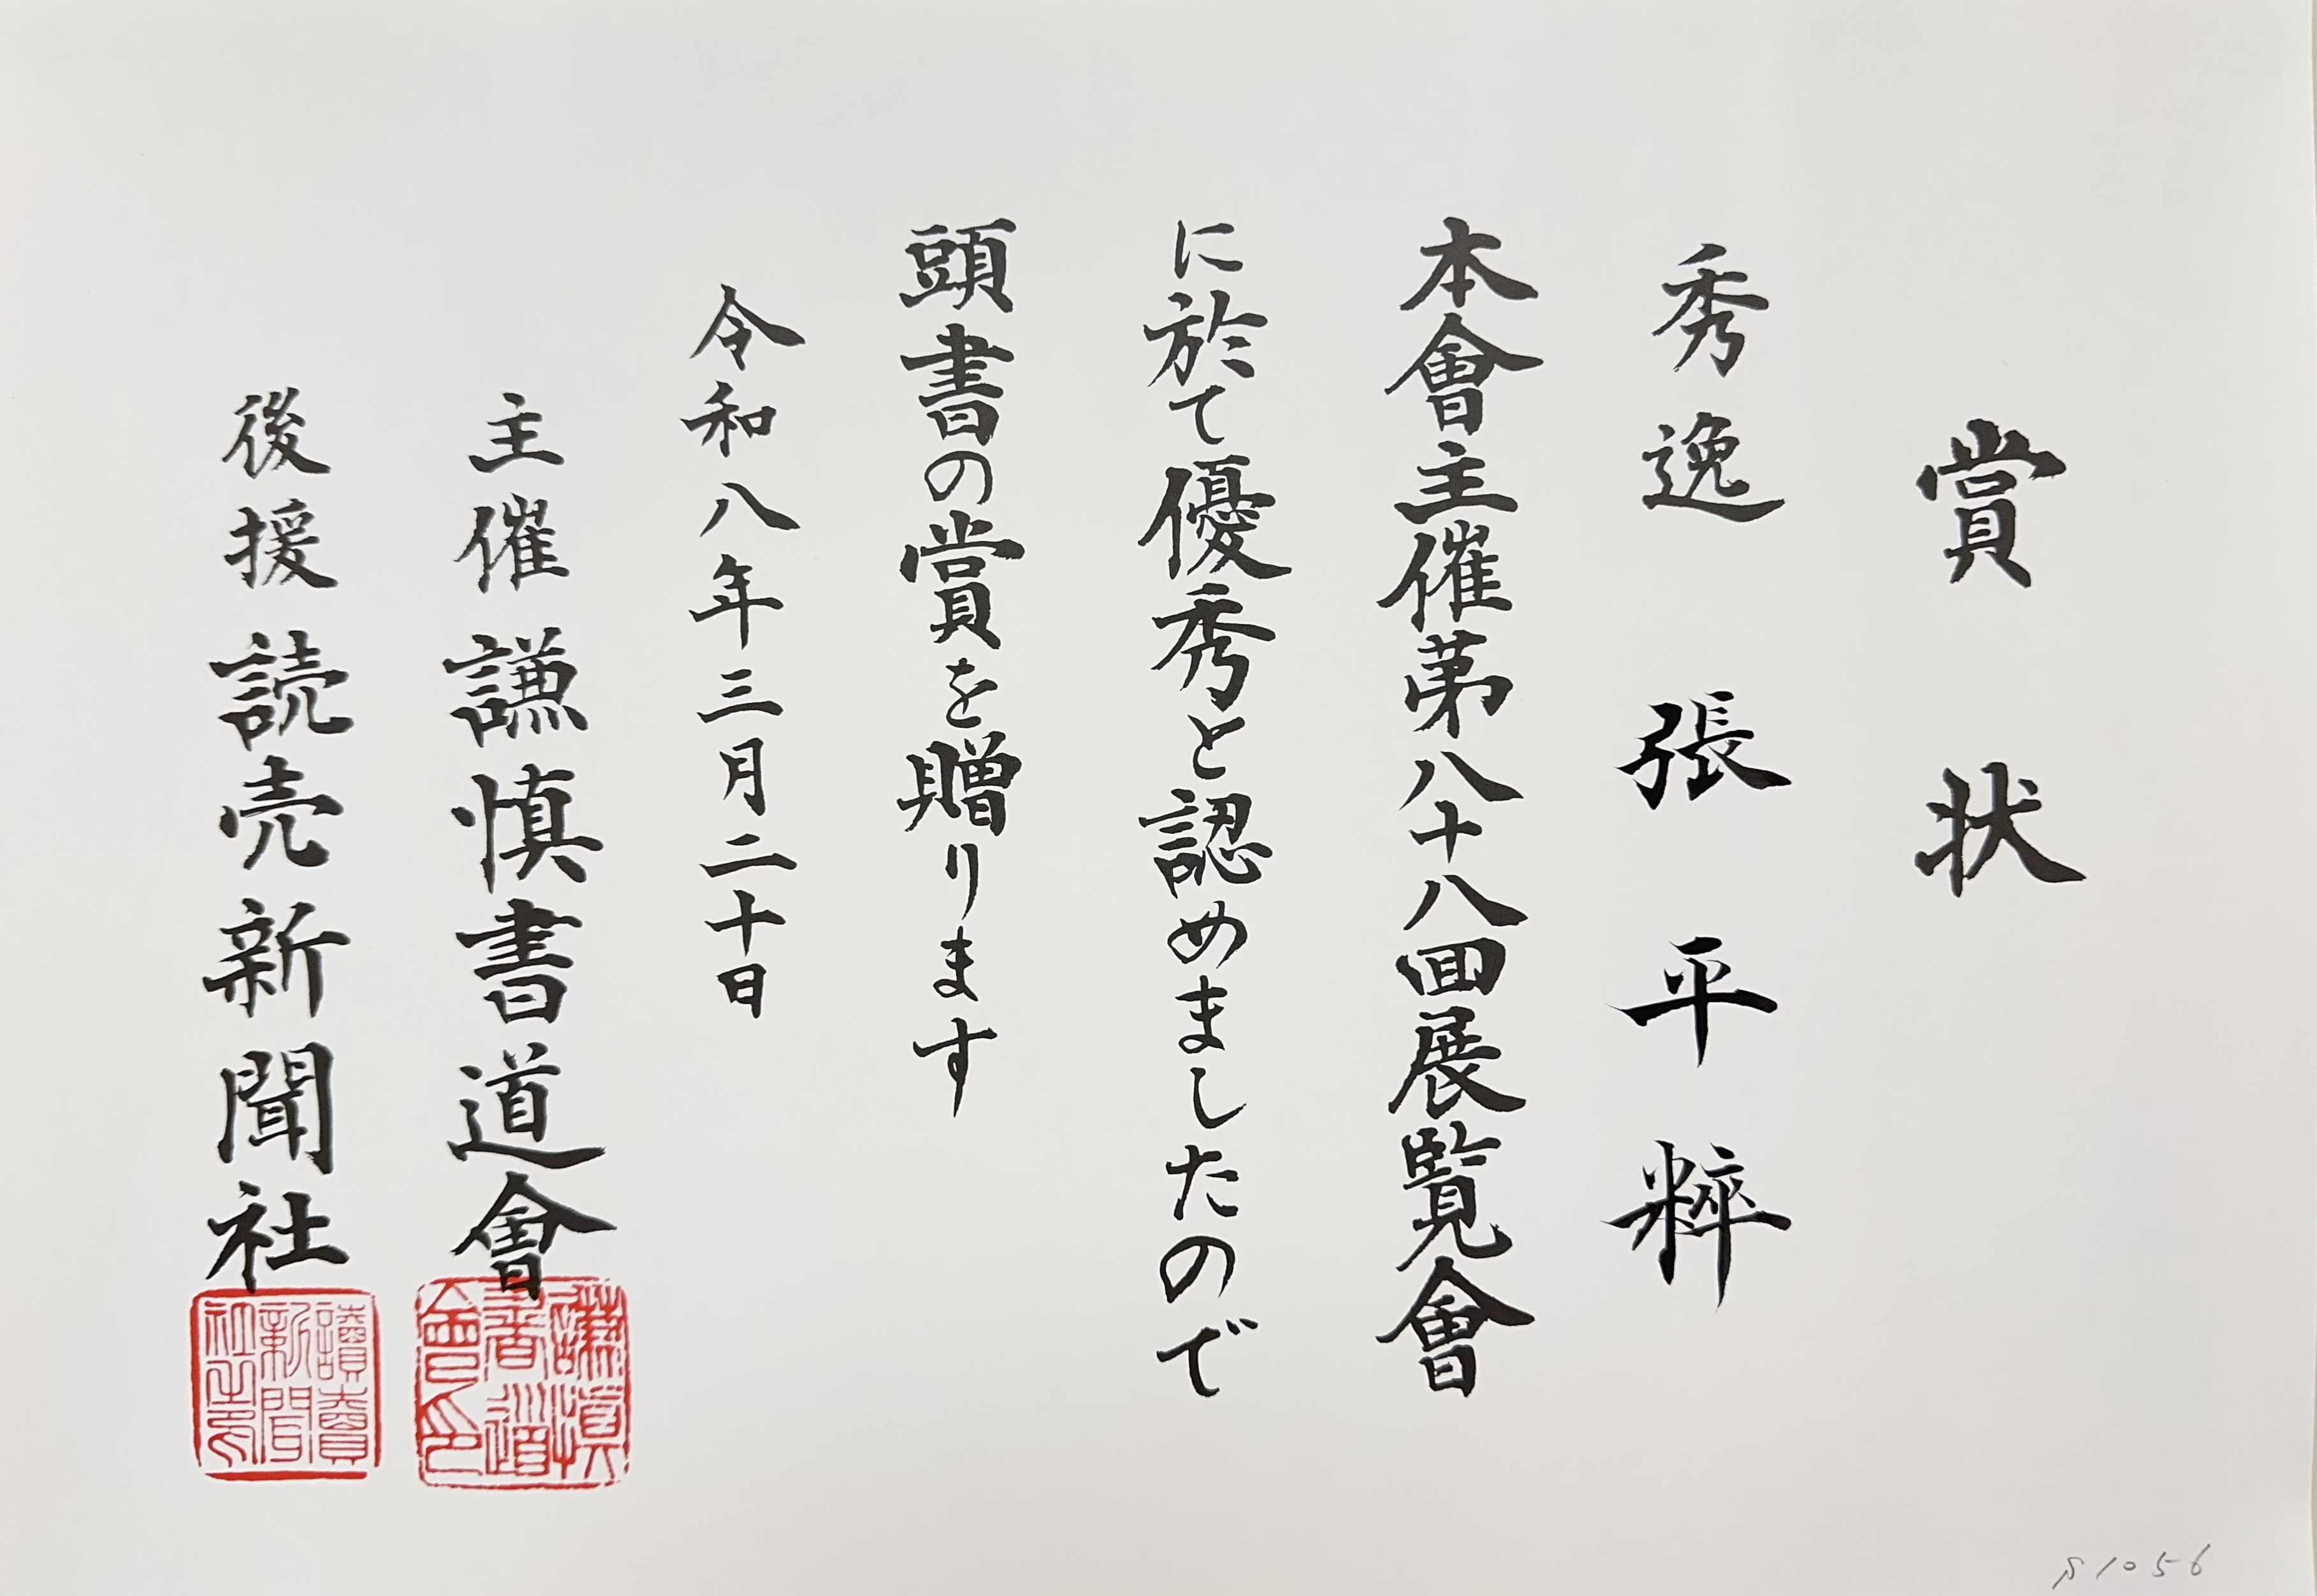 賞状
秀逸 張平粹
本會主催第八十八回展覧會
に於て優秀と認めましたので
頭書の賞を贈ります
令和八年三月二十日
主催 謙慎書道會
後援 読売新聞社
謙慎書道會印
讀賣新聞社之印